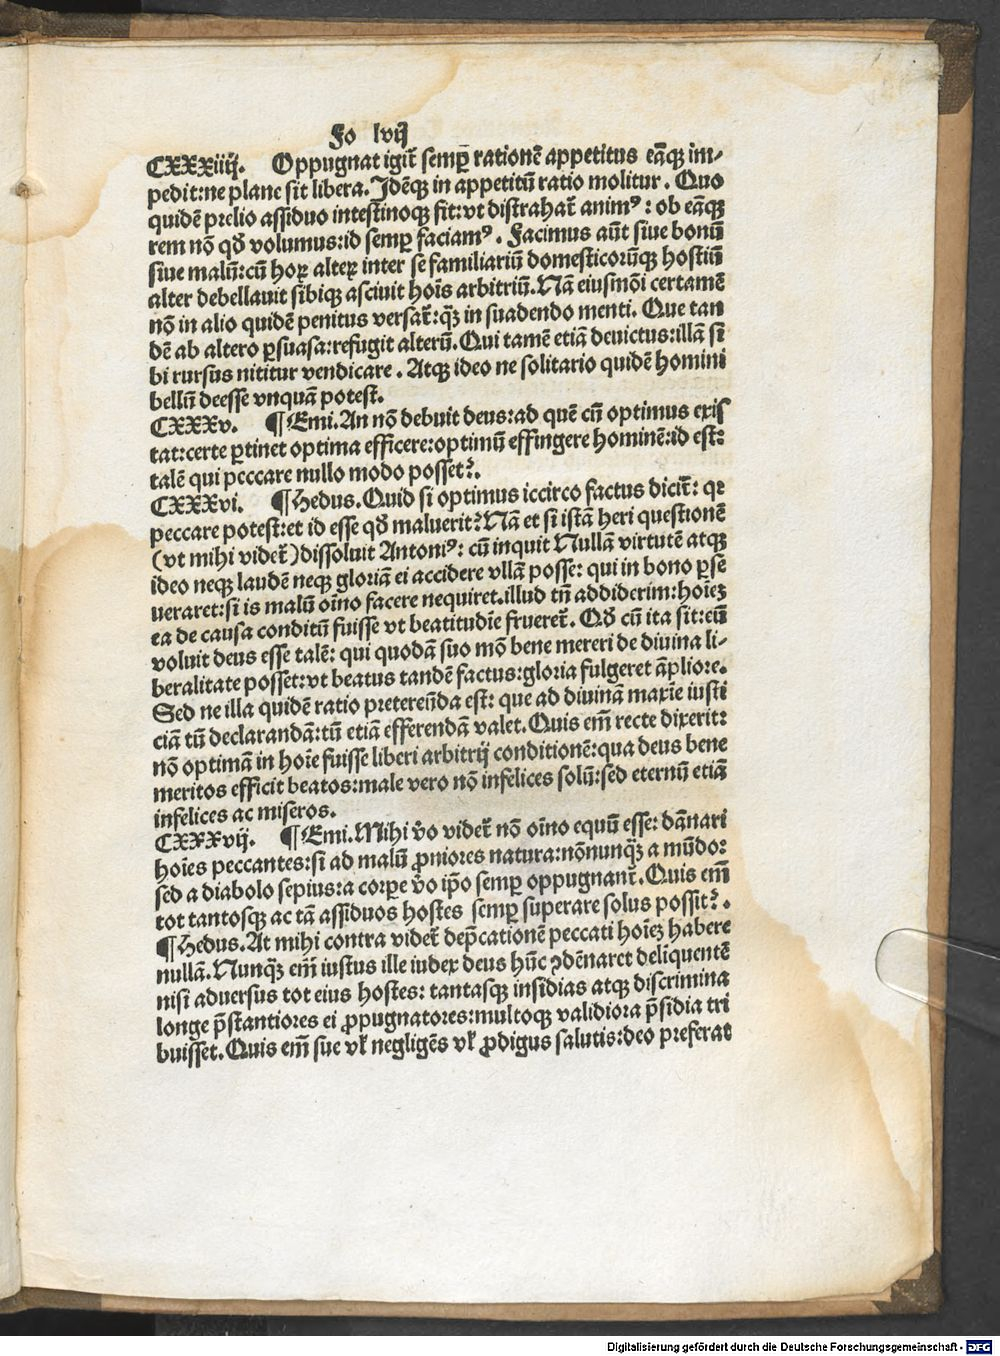 Fo lvij
CXXXiiij. Oppugnat igit̄ semꝑ rationē appetitus eāqꝫ im-
pedit:ne plane sit libera. Idēqꝫ in appetitū ratio molitur. Quo
quidē prelio assiduo intestinoqꝫ fit:vt distrahat̄ animꝰ: ob eāqꝫ
rem nō qđ volumus:id semꝑ faciamꝰ. Facimus aūt siue bonū
siue malū:cū hoꝝ alteꝝ inter se familiariū domesticorūqꝫ hostiū
alter debellauit sibiqꝫ asciuit hoīs arbitriū. Nā eiusmōi certamē
nō in alio quidē penitus versat̄:qꝫ̄ in suadendo menti. Que tan
dē ab altero ꝑsuasa:refugit alterū. Qui tamē etiā deuictus:illā si
bi rursus nititur vendicare. Atqꝫ ideo ne solitario quidē homini
bellū deesse vnquā potest.
CXXXv. ¶Emi. An nō debuit deus:ad quē cū optimus exis
tat:certe ꝑtinet optima efficere:optimū effingere hominē:id est:
talē qui peccare nullo modo posset?.
CXXXvi. ¶Hedus. Quid si optimus iccirco factus dicit̄: qꝛ
peccare potest:et id esse qđ maluerit? Nā et si istā heri questionē
(vt mihi videt̄) dissoluit Antoniꝰ: cū inquit Nullā virtutē atqꝫ
ideo neqꝫ laudē neqꝫ gloriā ei accidere vllā posse: qui in bono ꝑse
ueraret:si is malū oīno facere nequiret. illud tn̄ addiderim:hoīeꝫ
ea de causa conditū fuisse vt beatitudīe frueret̄. Qđ cū ita sit:eū
voluit deus esse talē: qui quodā suo mō bene mereri de diuina li-
beralitate posset:vt beatus tandē factus:gloria fulgeret āpliore.
Sed ne illa quidē ratio pretereūda est: que ad diuinā maxīe iusti
ciā tū declarandā:tū etiā efferendā valet. Quis em̄ recte dixerit:
nō optimā in hoīe fuisse liberi arbitrij conditionē:qua deus bene
meritos efficit beatos:male vero nō infelices solū:sed eternū etiā
infelices ac miseros.
CXXXvij. ¶Emi. Mihi v̄o videt̄ nō oīno equū esse: dānari
hoīes peccantes:si ad malū ꝓniores natura:nōnunqꝫ̄ a mūdo:
sed a diabolo sepius:a corꝑe v̄o ip̄o semꝑ oppugnant̄. Quis em̄
tot tantosqꝫ ac tā assiduos hostes semꝑ superare solus possit?.
¶Hedus. At mihi contra videt̄ dep̄cationē peccati hoīeꝫ habere
nullā. Nunqꝫ̄ em̄ iustus ille iudex deus hūc ꝯdēnaret deliquentē
nisi aduersus tot eius hostes: tantasqꝫ insidias atqꝫ discrimina
longe p̄stantiores ei ꝓpugnatores:multoqꝫ validiora p̄sidia tri
buisset. Quis em̄ sue vł negligēs vł ꝓdigus salutis:deo preferat
Digitalisierung gefördert durch die Deutsche Forschungsgemeinschaft - DFG